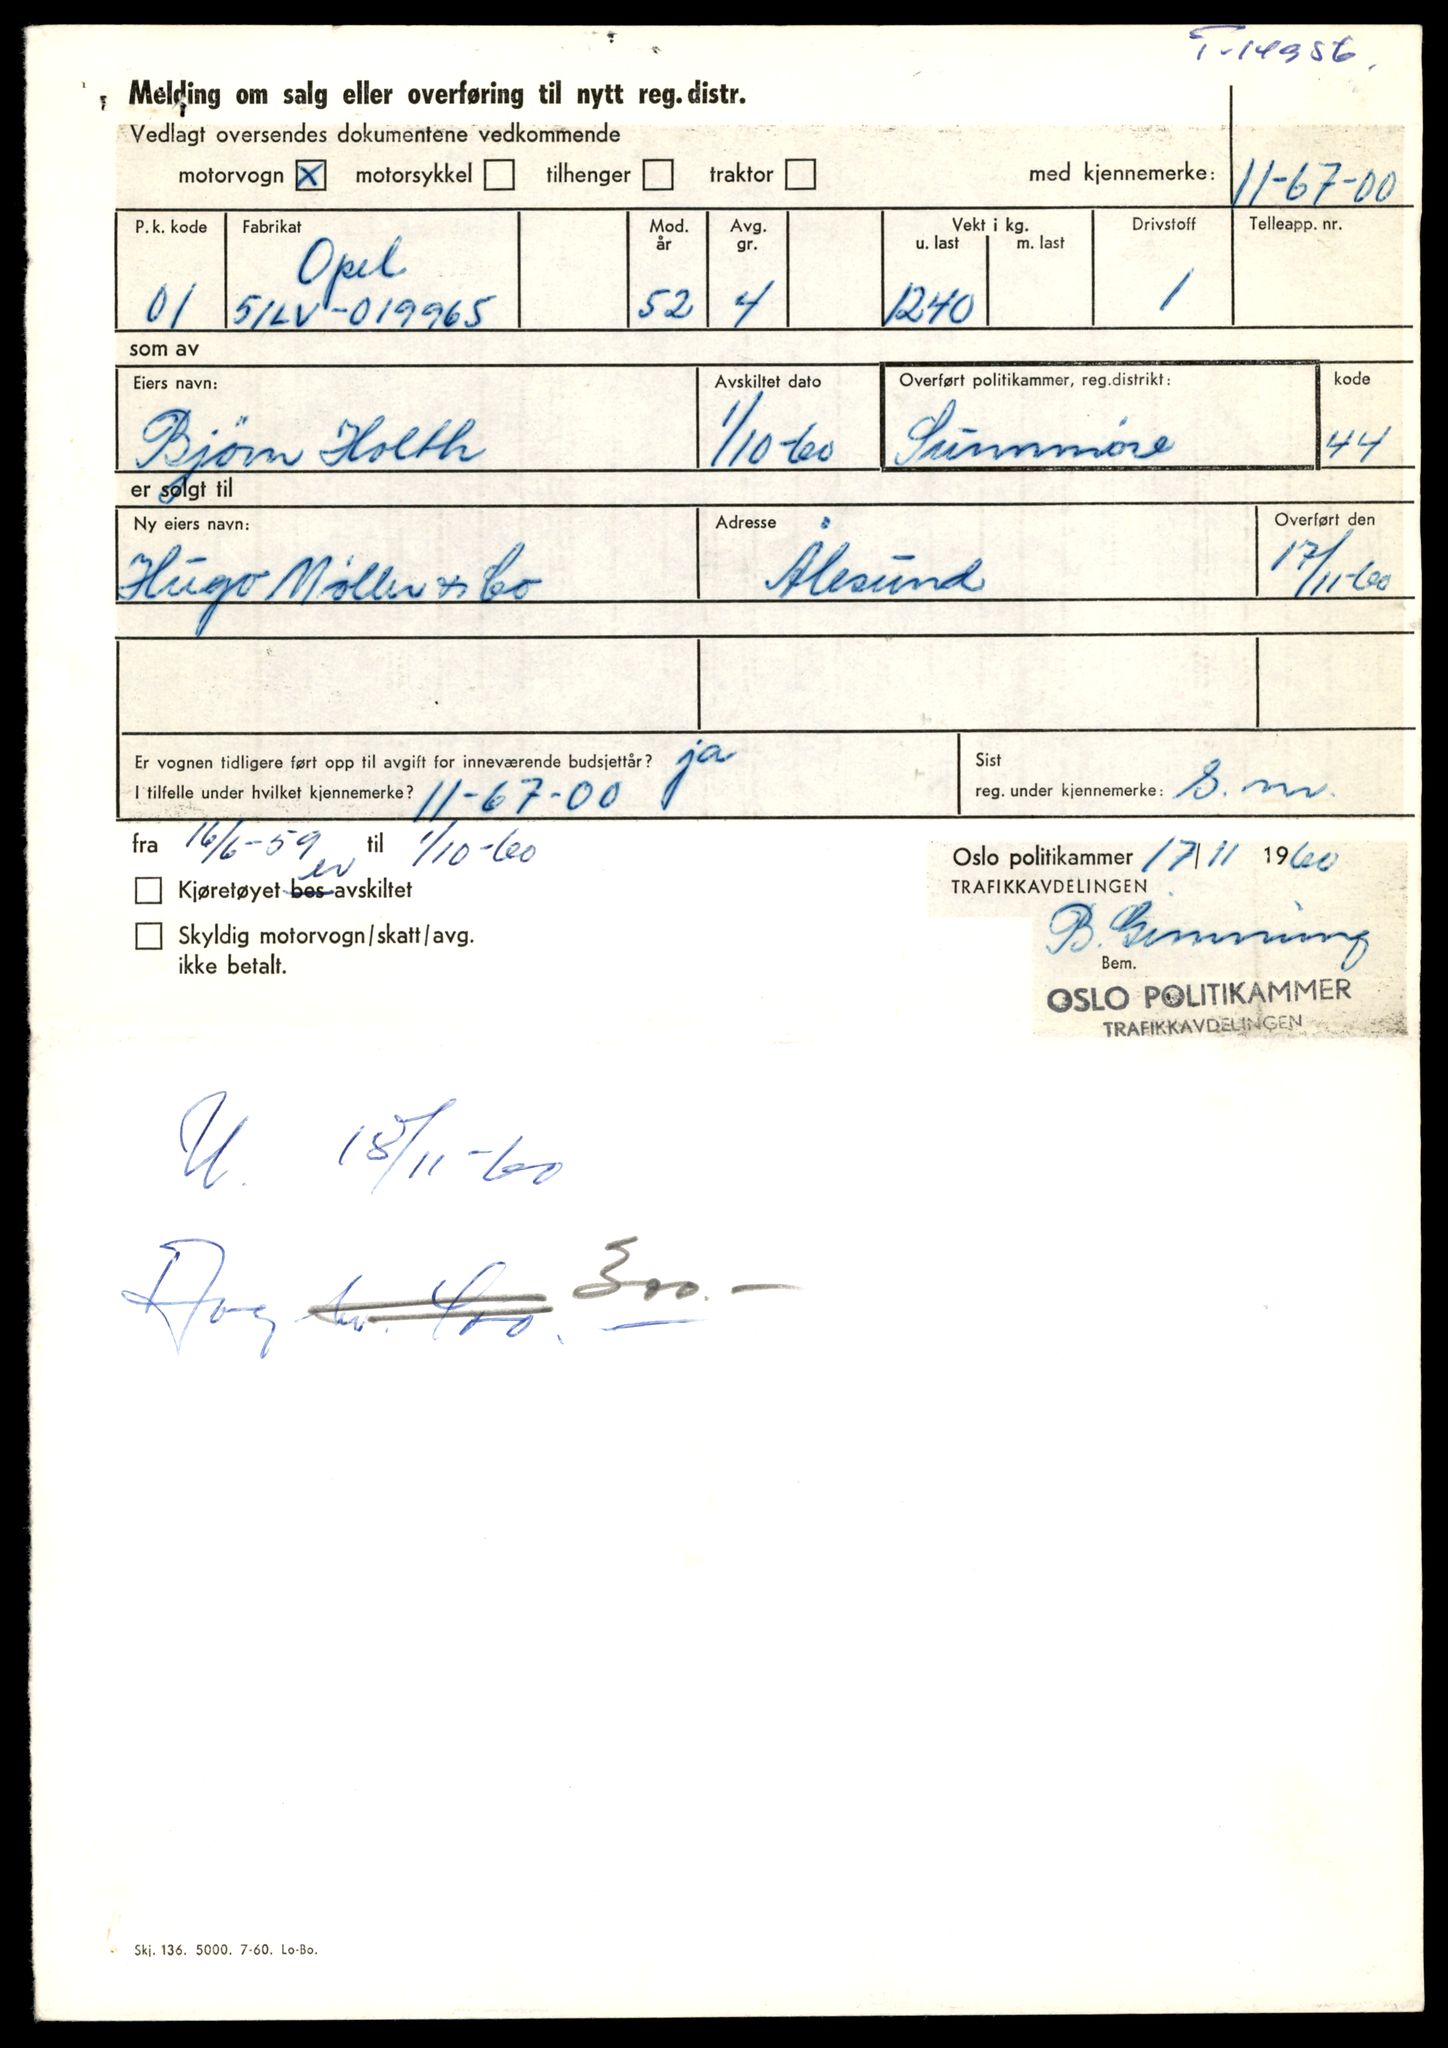 T-14956.
Melding om salg eller overføring til nytt reg. distr.
Vedlagt oversendes dokumentene vedkommende
motorvogn X motorsykkel tilhenger traktor med kjennemerke: 11-67-00
P. k. kode Fabrikat Mod. år Avg. gr. Vekt i kg. u. last m. last Drivstoff Telleapp. nr.
Opel
01 51LV-019965 52 4 1240 1
som av
Eiers navn: Avskiltet dato Overført politikammer, reg.distrikt: kode
Bjørn Holth 1/10-60 Sunnmöre 44
er solgt til
Ny eiers navn: Adresse Overført den
Hugo Møller & Co Ålesund 17/11-60
Er vognen tidligere ført opp til avgift for inneværende budsjettår? ja
I tilfelle under hvilket kjennemerke? 11-67-00
Sist
reg. under kjennemerke: S. nr.
fra 16/6-59 til 1/10-60
er
Kjøretøyet bes avskiltet
Skyldig motorvogn/skatt/avg.
ikke betalt.
Oslo politikammer 17/11 1960
TRAFIKKAVDELINGEN
B. Gimming
Bem.
OSLO POLITIKAMMER
TRAFIKKAVDELINGEN
U. 18/11-60
300.-
Skj. 136. 5000. 7-60. Lo-Bo.